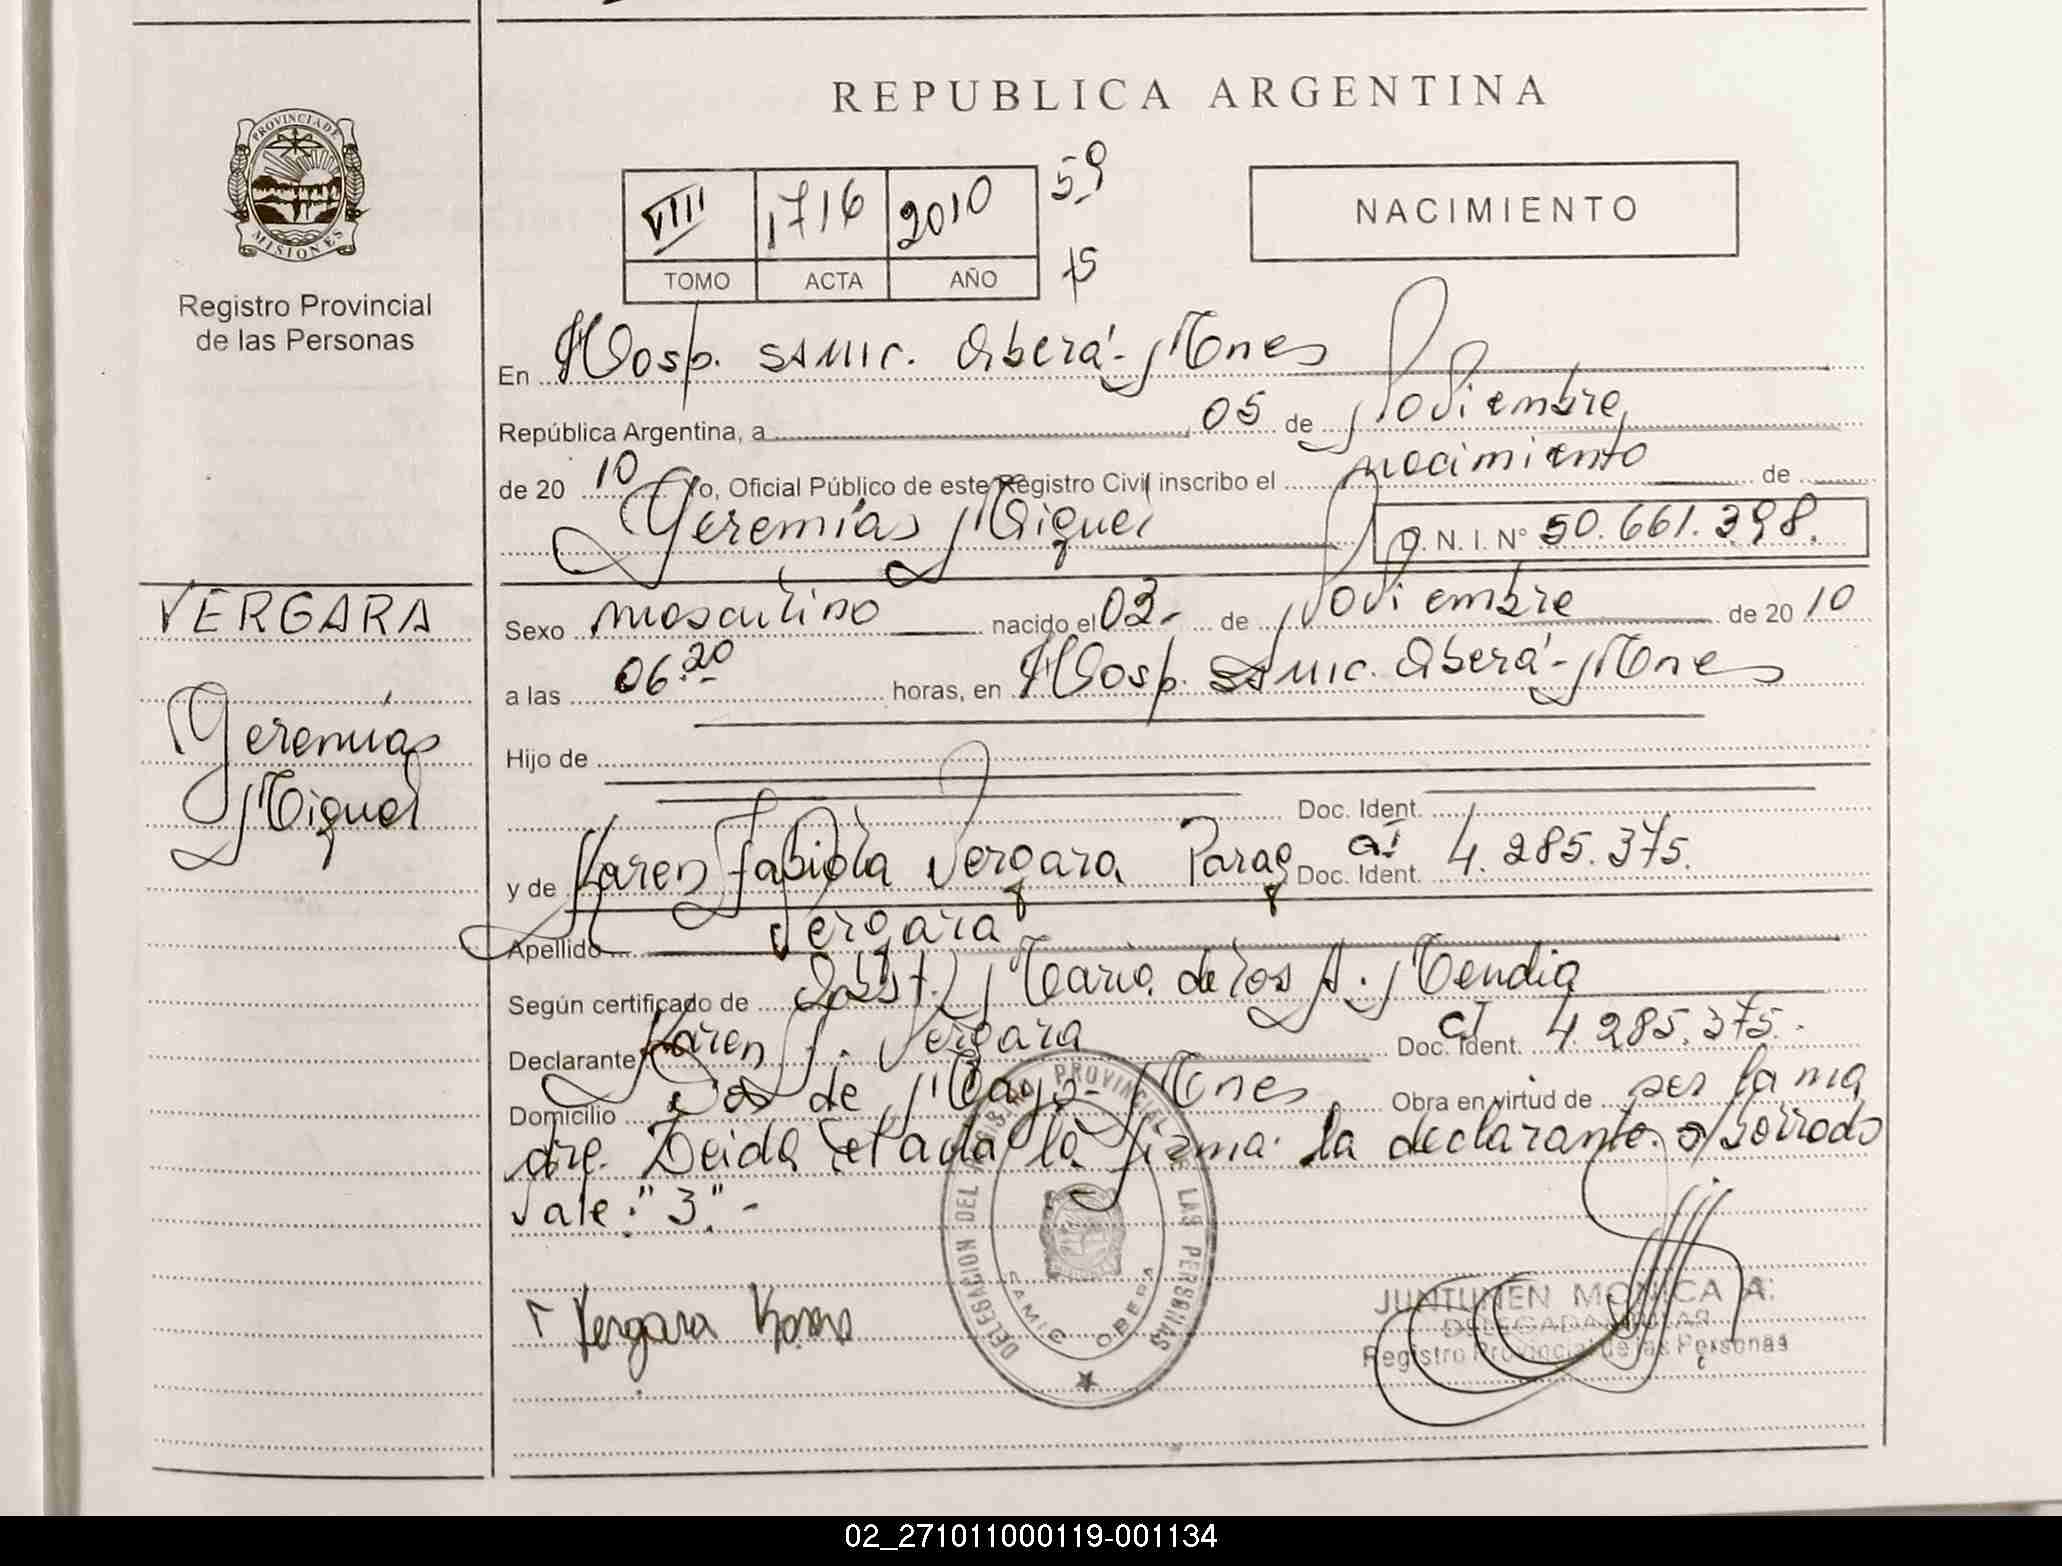 REPUBLICA ARGENTINA
PROVINCIA DE
MISIONES
Registro Provincial
de las Personas
VIII 1716 2010 59
TOMO ACTA AÑO 75
NACIMIENTO
En Hosp. SAMIC. Oberá - Mnes
República Argentina, a 05 de Noviembre
de 20 10 Yo, Oficial Público de este Registro Civil inscribo el nacimiento de
Geremías Miguel D. N. I. N° 50.661.398.
VERGARA
Geremías
Miguel
Sexo masculino nacido el 03- de Noviembre de 20 10
a las 06.20 horas, en Hosp. SAMIC. Oberá - Mnes
Hijo de
Doc. Ident.
y de Karen Fabiola Vergara Parag CI Doc. Ident. 4.285.375.
Apellido Vergara
Según certificado de Obst. María de los A. Mendia
Declarante Karen F. Vergara CI Doc. Ident. 4.285.375.-
Domicilio 2 de Mayo - Mnes Obra en virtud de ser la ma
dre. Leida el acta la firma la declarante. s/borrado
vale: "3".-
Vergara Karen
DELEGACION DEL REGISTRO PROVINCIAL DE LAS PERSONAS
SAMIC OBERA
JUNTUNEN MONICA A.
DELEGADA TITULAR
Registro Provincial de las Personas
02_271011000119-001134